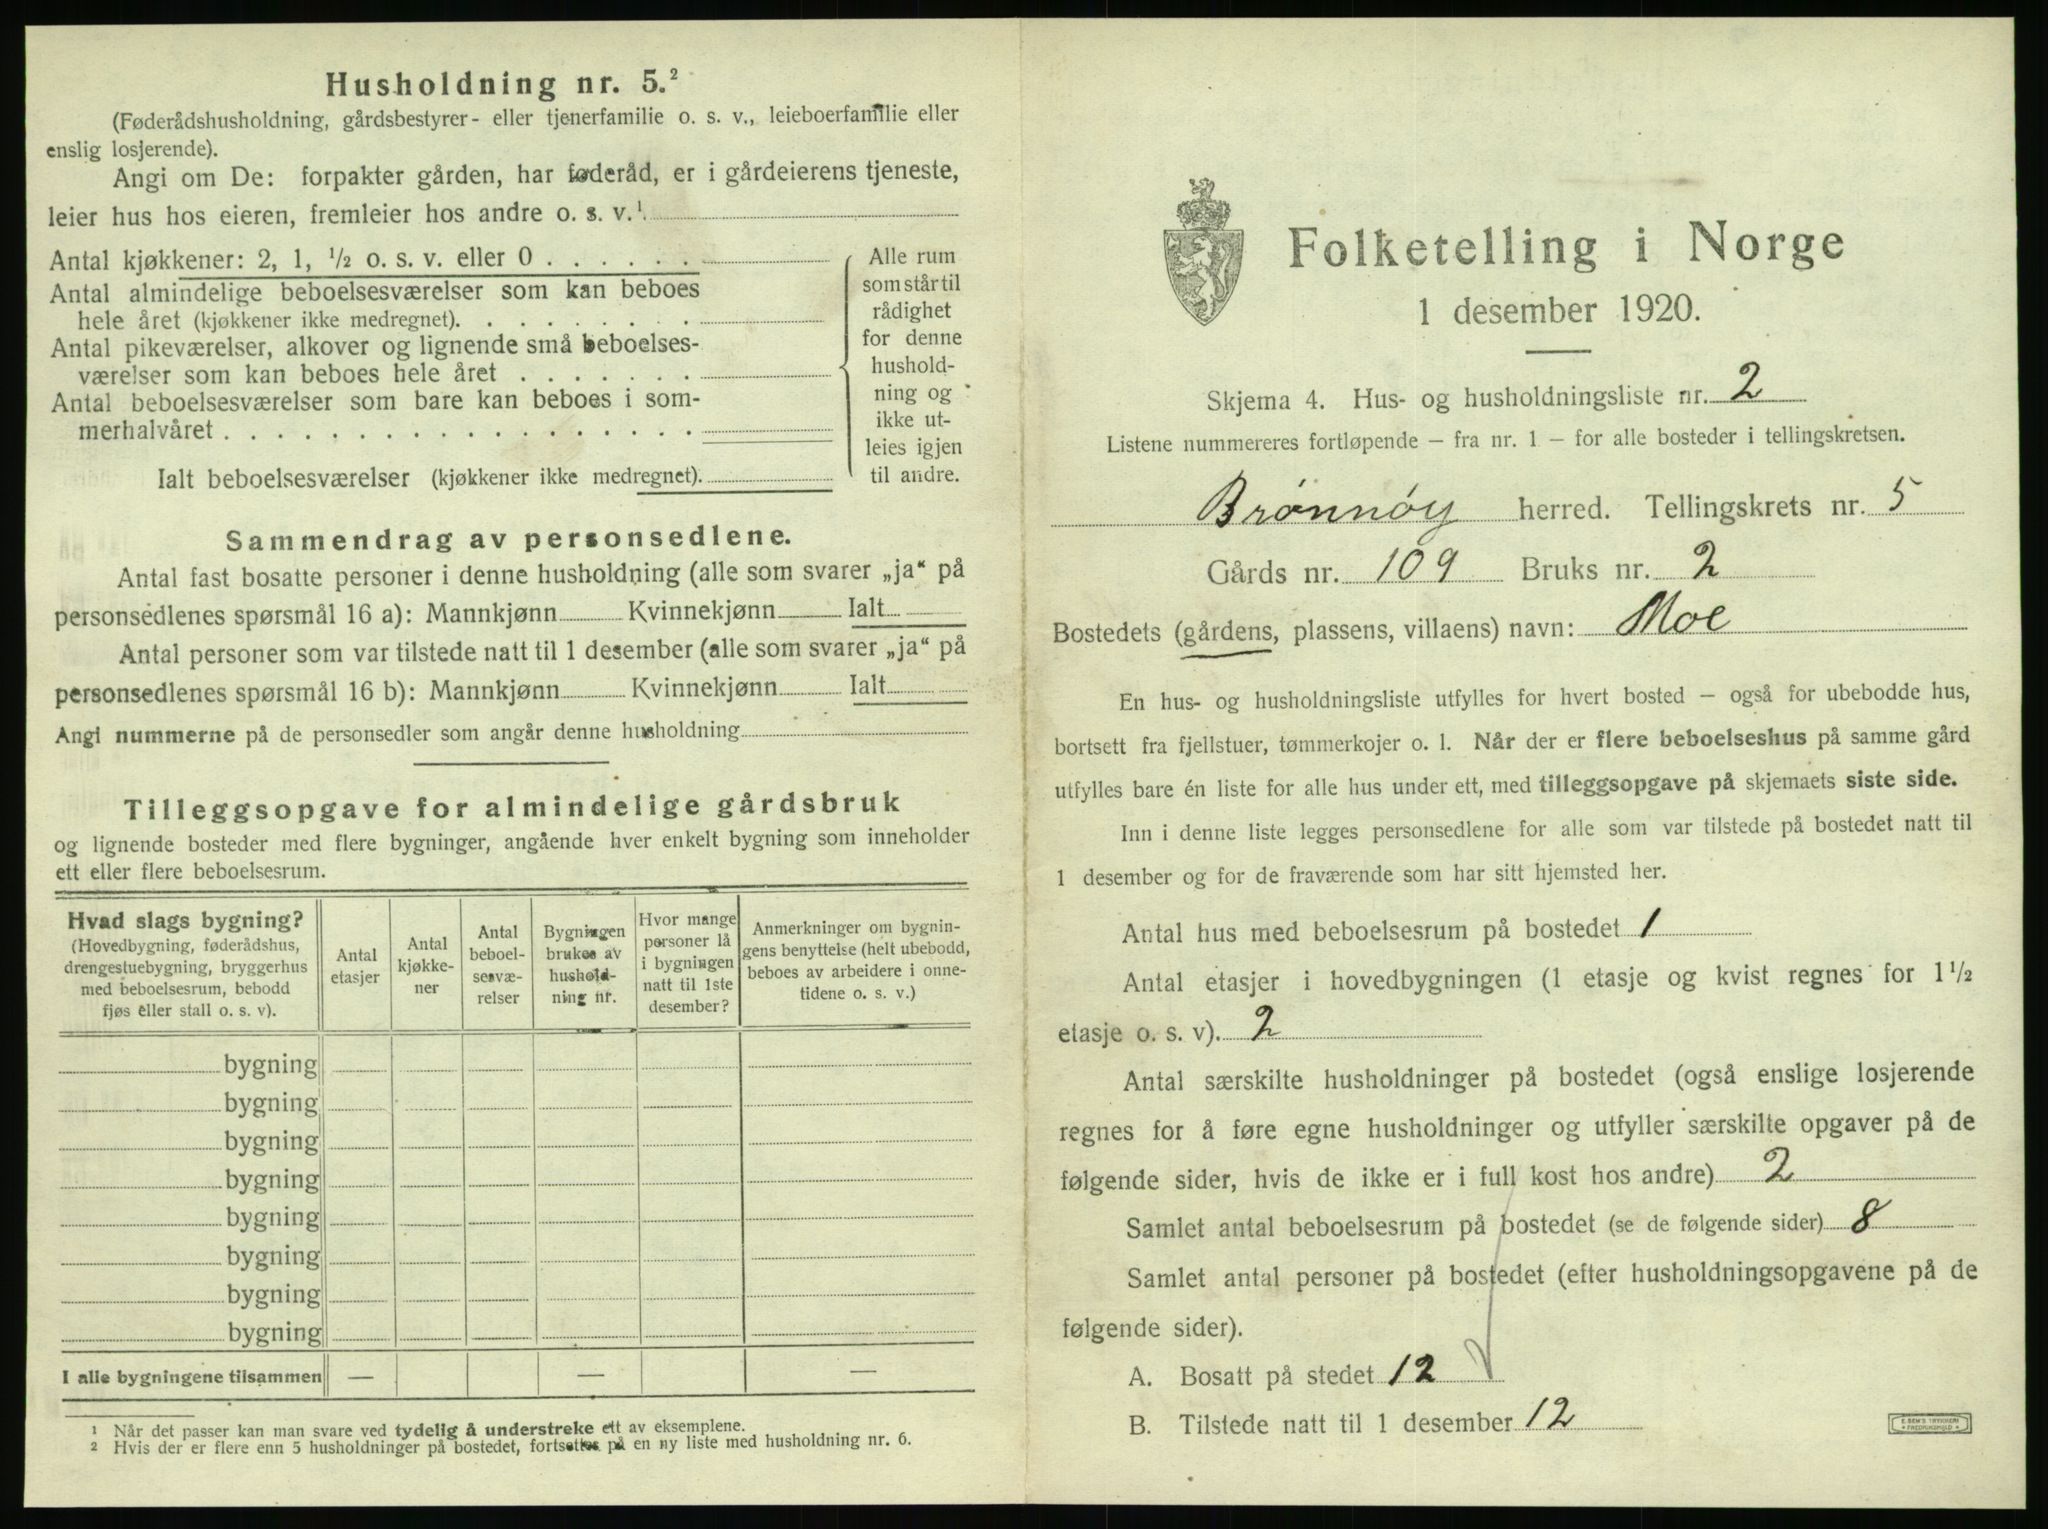 Husholdning nr. 5.²
(Føderådshusholdning, gårdsbestyrer- eller tjenerfamilie o. s. v., leieboerfamilie eller
enslig losjerende).
Angi om De: forpakter gården, har føderåd, er i gårdeierens tjeneste,
leier hus hos eieren, fremleier hos andre o. s. v.¹
Antal kjøkkener: 2, 1, ½ o. s. v. eller 0
Antal almindelige beboelsesværelser som kan beboes
hele året (kjøkkener ikke medregnet).
Antal pikeværelser, alkover og lignende små beboelses-
værelser som kan beboes hele året
Antal beboelsesværelser som bare kan beboes i som-
merhalvåret
Ialt beboelsesværelser (kjøkkener ikke medregnet).
Alle rum
som står til
rådighet
for denne
hushold-
ning og
ikke ut-
leies igjen
til andre.
Sammendrag av personsedlene.
Antal fast bosatte personer i denne husholdning (alle som svarer „ja“ på
personsedlenes spørsmål 16 a): Mannkjønn Kvinnekjønn Ialt
Antal personer som var tilstede natt til 1 desember (alle som svarer „ja“ på
personsedlenes spørsmål 16 b): Mannkjønn Kvinnekjønn Ialt
Angi nummerne på de personsedler som angår denne husholdning
Tilleggsopgave for almindelige gårdsbruk
og lignende bosteder med flere bygninger, angående hver enkelt bygning som inneholder
ett eller flere beboelsesrum.
Hvad slags bygning?
(Hovedbygning, føderådshus,
drengestuebygning, bryggerhus
med beboelsesrum, bebodd
fjøs eller stall o. s. v).
Antal
etasjer
Antal
kjøkke-
ner
Antal
beboel-
sesvæ-
relser
Bygningen
brukes av
hushold-
ning nr.
Hvor mange
personer lå
i bygningen
natt til 1ste
desember?
Anmerkninger om bygnin-
gens benyttelse (helt ubebodd,
beboes av arbeidere i onne-
tidene o. s. v.)
bygning
bygning
bygning
bygning
bygning
bygning
bygning
bygning
I alle bygningene tilsammen — — —
¹ Når det passer kan man svare ved tydelig å understreke ett av eksemplene.
² Hvis der er flere enn 5 husholdninger på bostedet, fortsettes på en ny liste med husholdning nr. 6.
Folketelling i Norge
1 desember 1920.
Skjema 4. Hus- og husholdningsliste nr. 2
Listene nummereres fortløpende – fra nr. 1 – for alle bosteder i tellingskretsen.
Brønnøy herred. Tellingskrets nr. 5
Gårds nr. 109 Bruks nr. 2
Bostedets (gårdens, plassens, villaens) navn: Moe
En hus- og husholdningsliste utfylles for hvert bosted – også for ubebodde hus,
bortsett fra fjellstuer, tømmerkojer o. l. Når der er flere beboelseshus på samme gård
utfylles bare én liste for alle hus under ett, med tilleggsopgave på skjemaets siste side.
Inn i denne liste legges personsedlene for alle som var tilstede på bostedet natt til
1 desember og for de fraværende som har sitt hjemsted her.
Antal hus med beboelsesrum på bostedet 1
Antal etasjer i hovedbygningen (1 etasje og kvist regnes for 1½
etasje o. s. v). 2
Antal særskilte husholdninger på bostedet (også enslige losjerende
regnes for å føre egne husholdninger og utfyller særskilte opgaver på de
følgende sider, hvis de ikke er i full kost hos andre) 2
Samlet antal beboelsesrum på bostedet (se de følgende sider) 8
Samlet antal personer på bostedet (efter husholdningsopgavene på de
følgende sider).
A. Bosatt på stedet 12
B. Tilstede natt til 1 desember 12